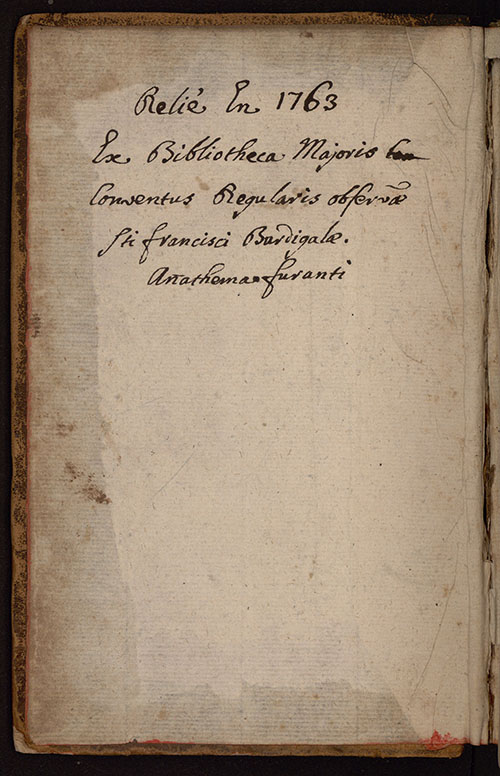 Relié En 1763
Ex Bibliotheca Majoris
Conventus Regularis observãe
Sti francisci Burdigalæ.
Anathema furanti